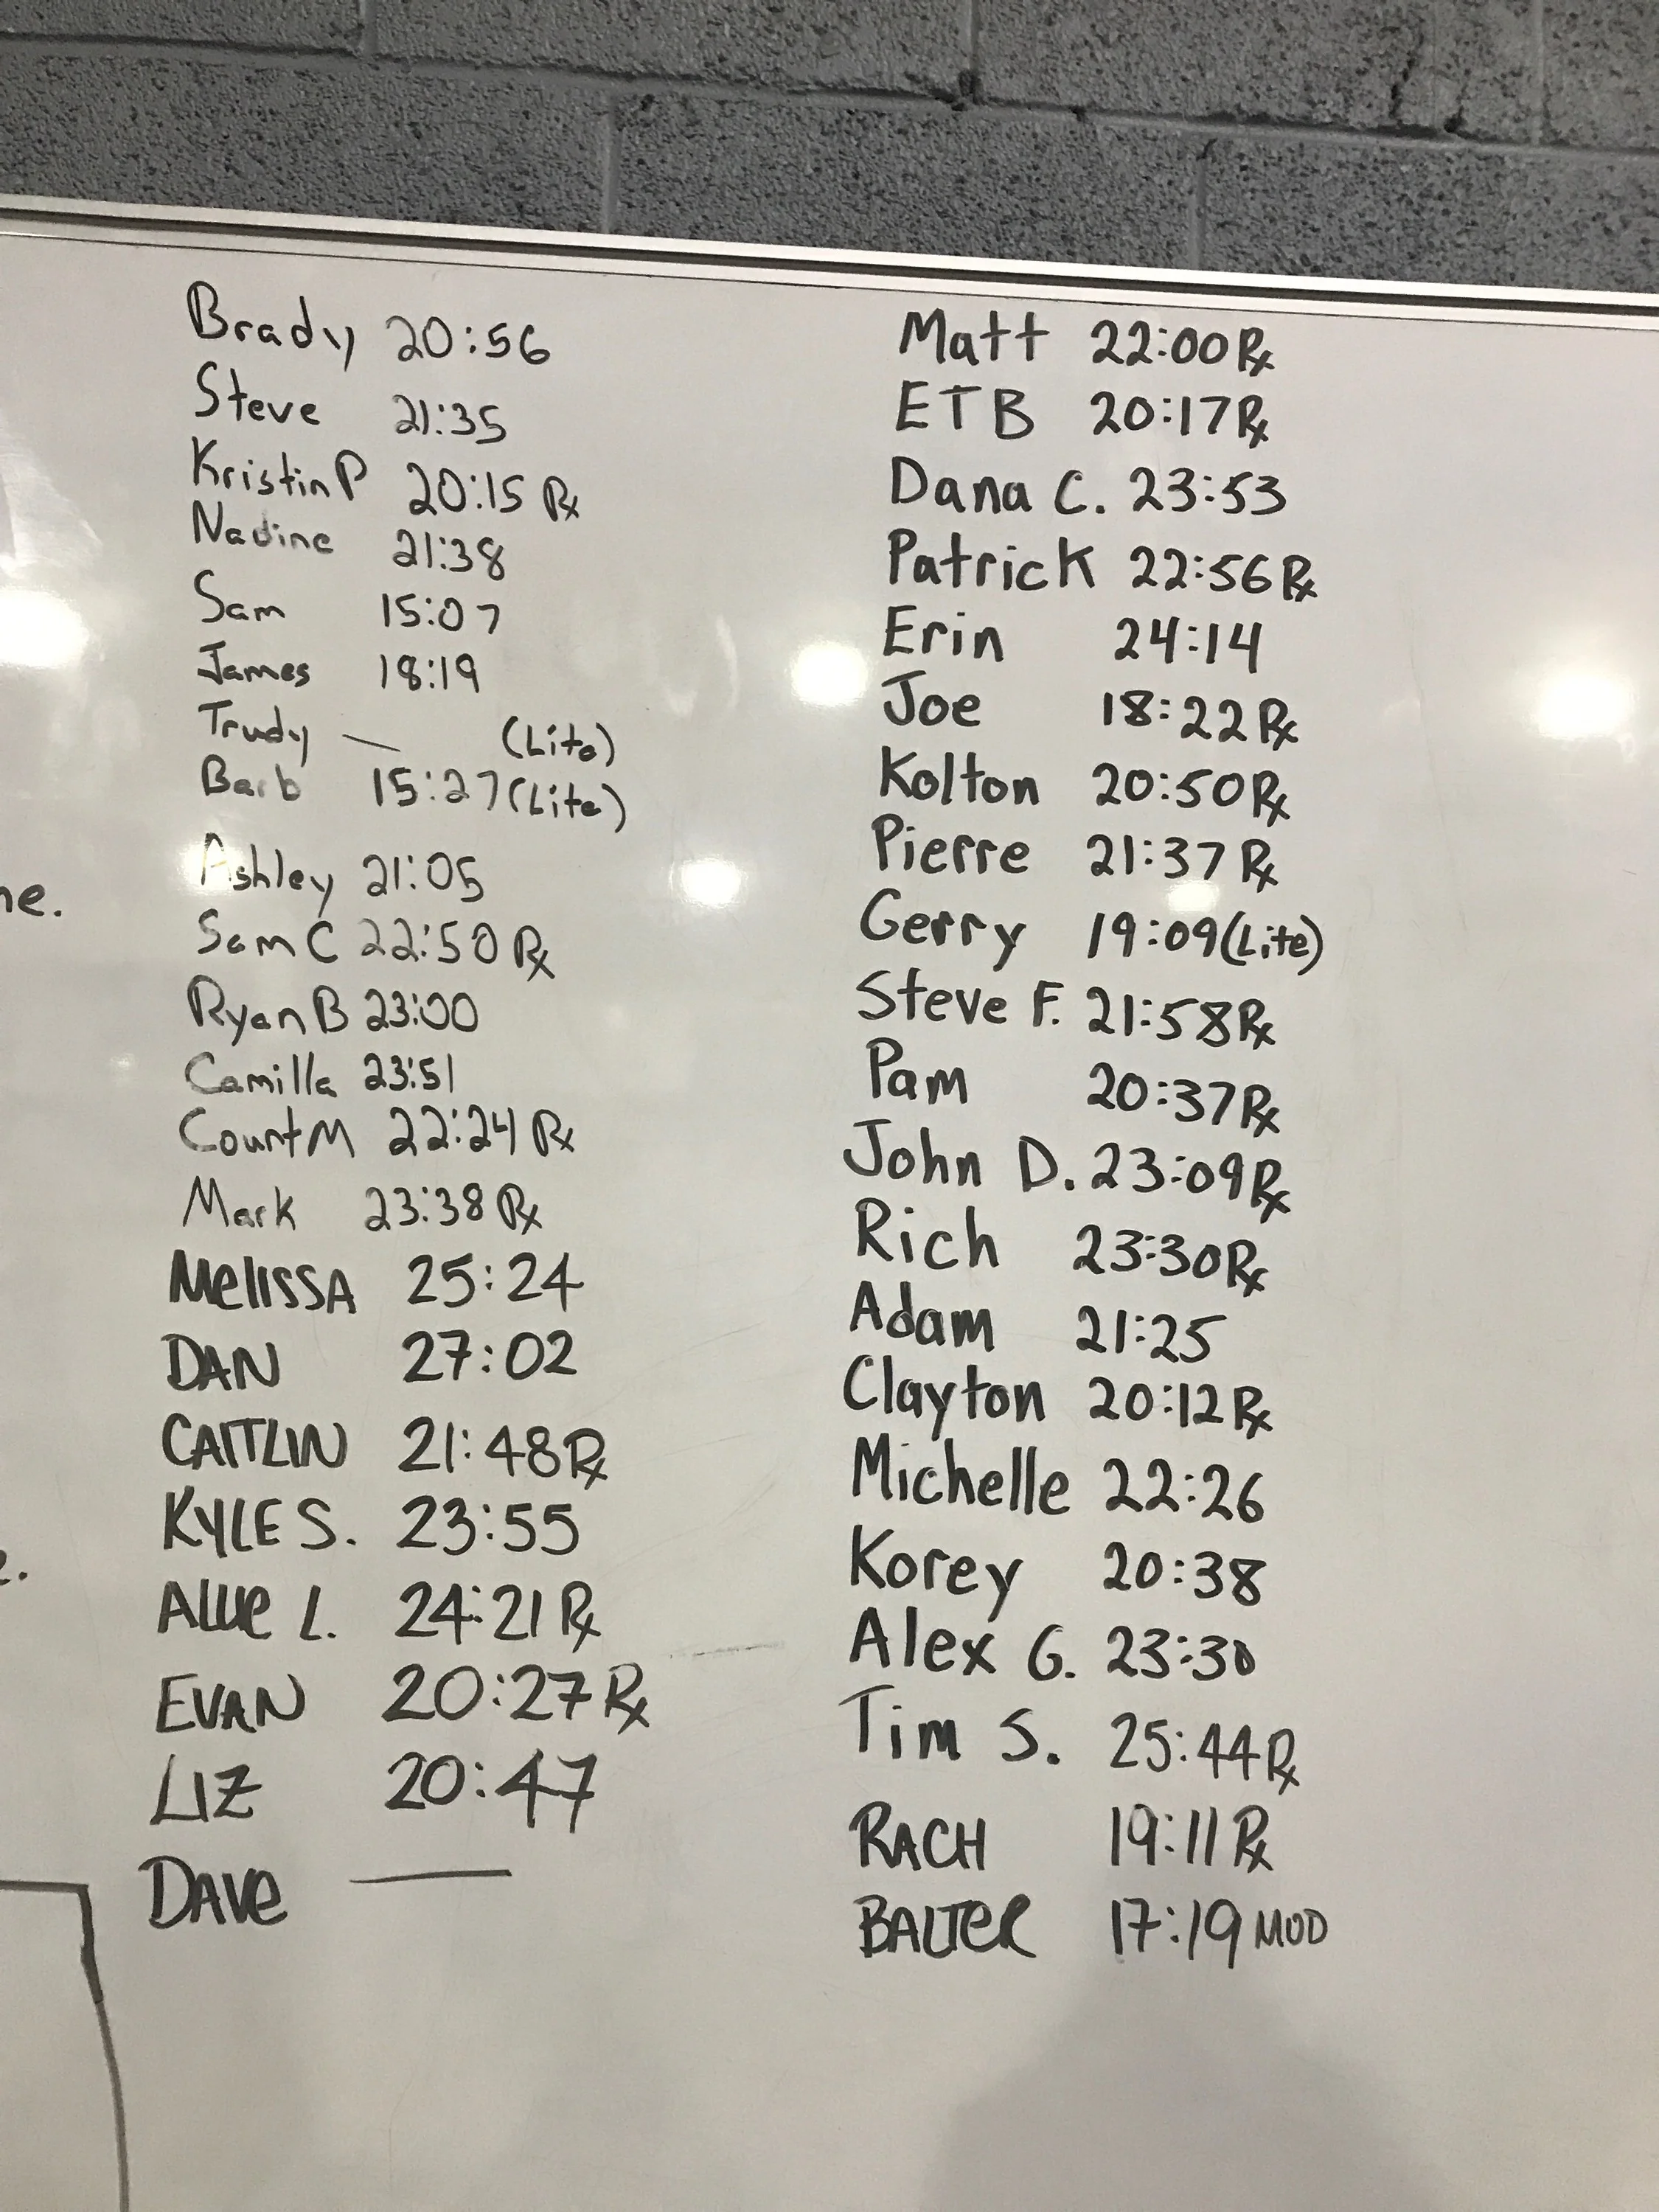 Brady 20:56
Steve 21:35
Kristin P 20:15 Rx
Nadine 21:38
Sam 15:07
James 18:19
Trudy — (Lite)
Barb 15:27 (Lite)
Ashley 21:05
Sam C 22:50 Rx
Ryan B 23:00
Camilla 23:51
Count M 22:24 Rx
Mark 23:38 Rx
MelissA 25:24
DAN 27:02
CAITLIN 21:48 Rx
KYLE S. 23:55
Allie L. 24:21 Rx
EVAN 20:27 Rx
LIZ 20:47
DAVe —
Matt 22:00 Rx
ETB 20:17 Rx
Dana C. 23:53
Patrick 22:56 Rx
Erin 24:14
Joe 18:22 Rx
Kolton 20:50 Rx
Pierre 21:37 Rx
Gerry 19:09 (Lite)
Steve F. 21:58 Rx
Pam 20:37 Rx
John D. 23:09 Rx
Rich 23:30 Rx
Adam 21:25
Clayton 20:12 Rx
Michelle 22:26
Korey 20:38
Alex G. 23:30
Tim S. 25:44 Rx
RACH 19:11 Rx
BALTeR 17:19 MOD